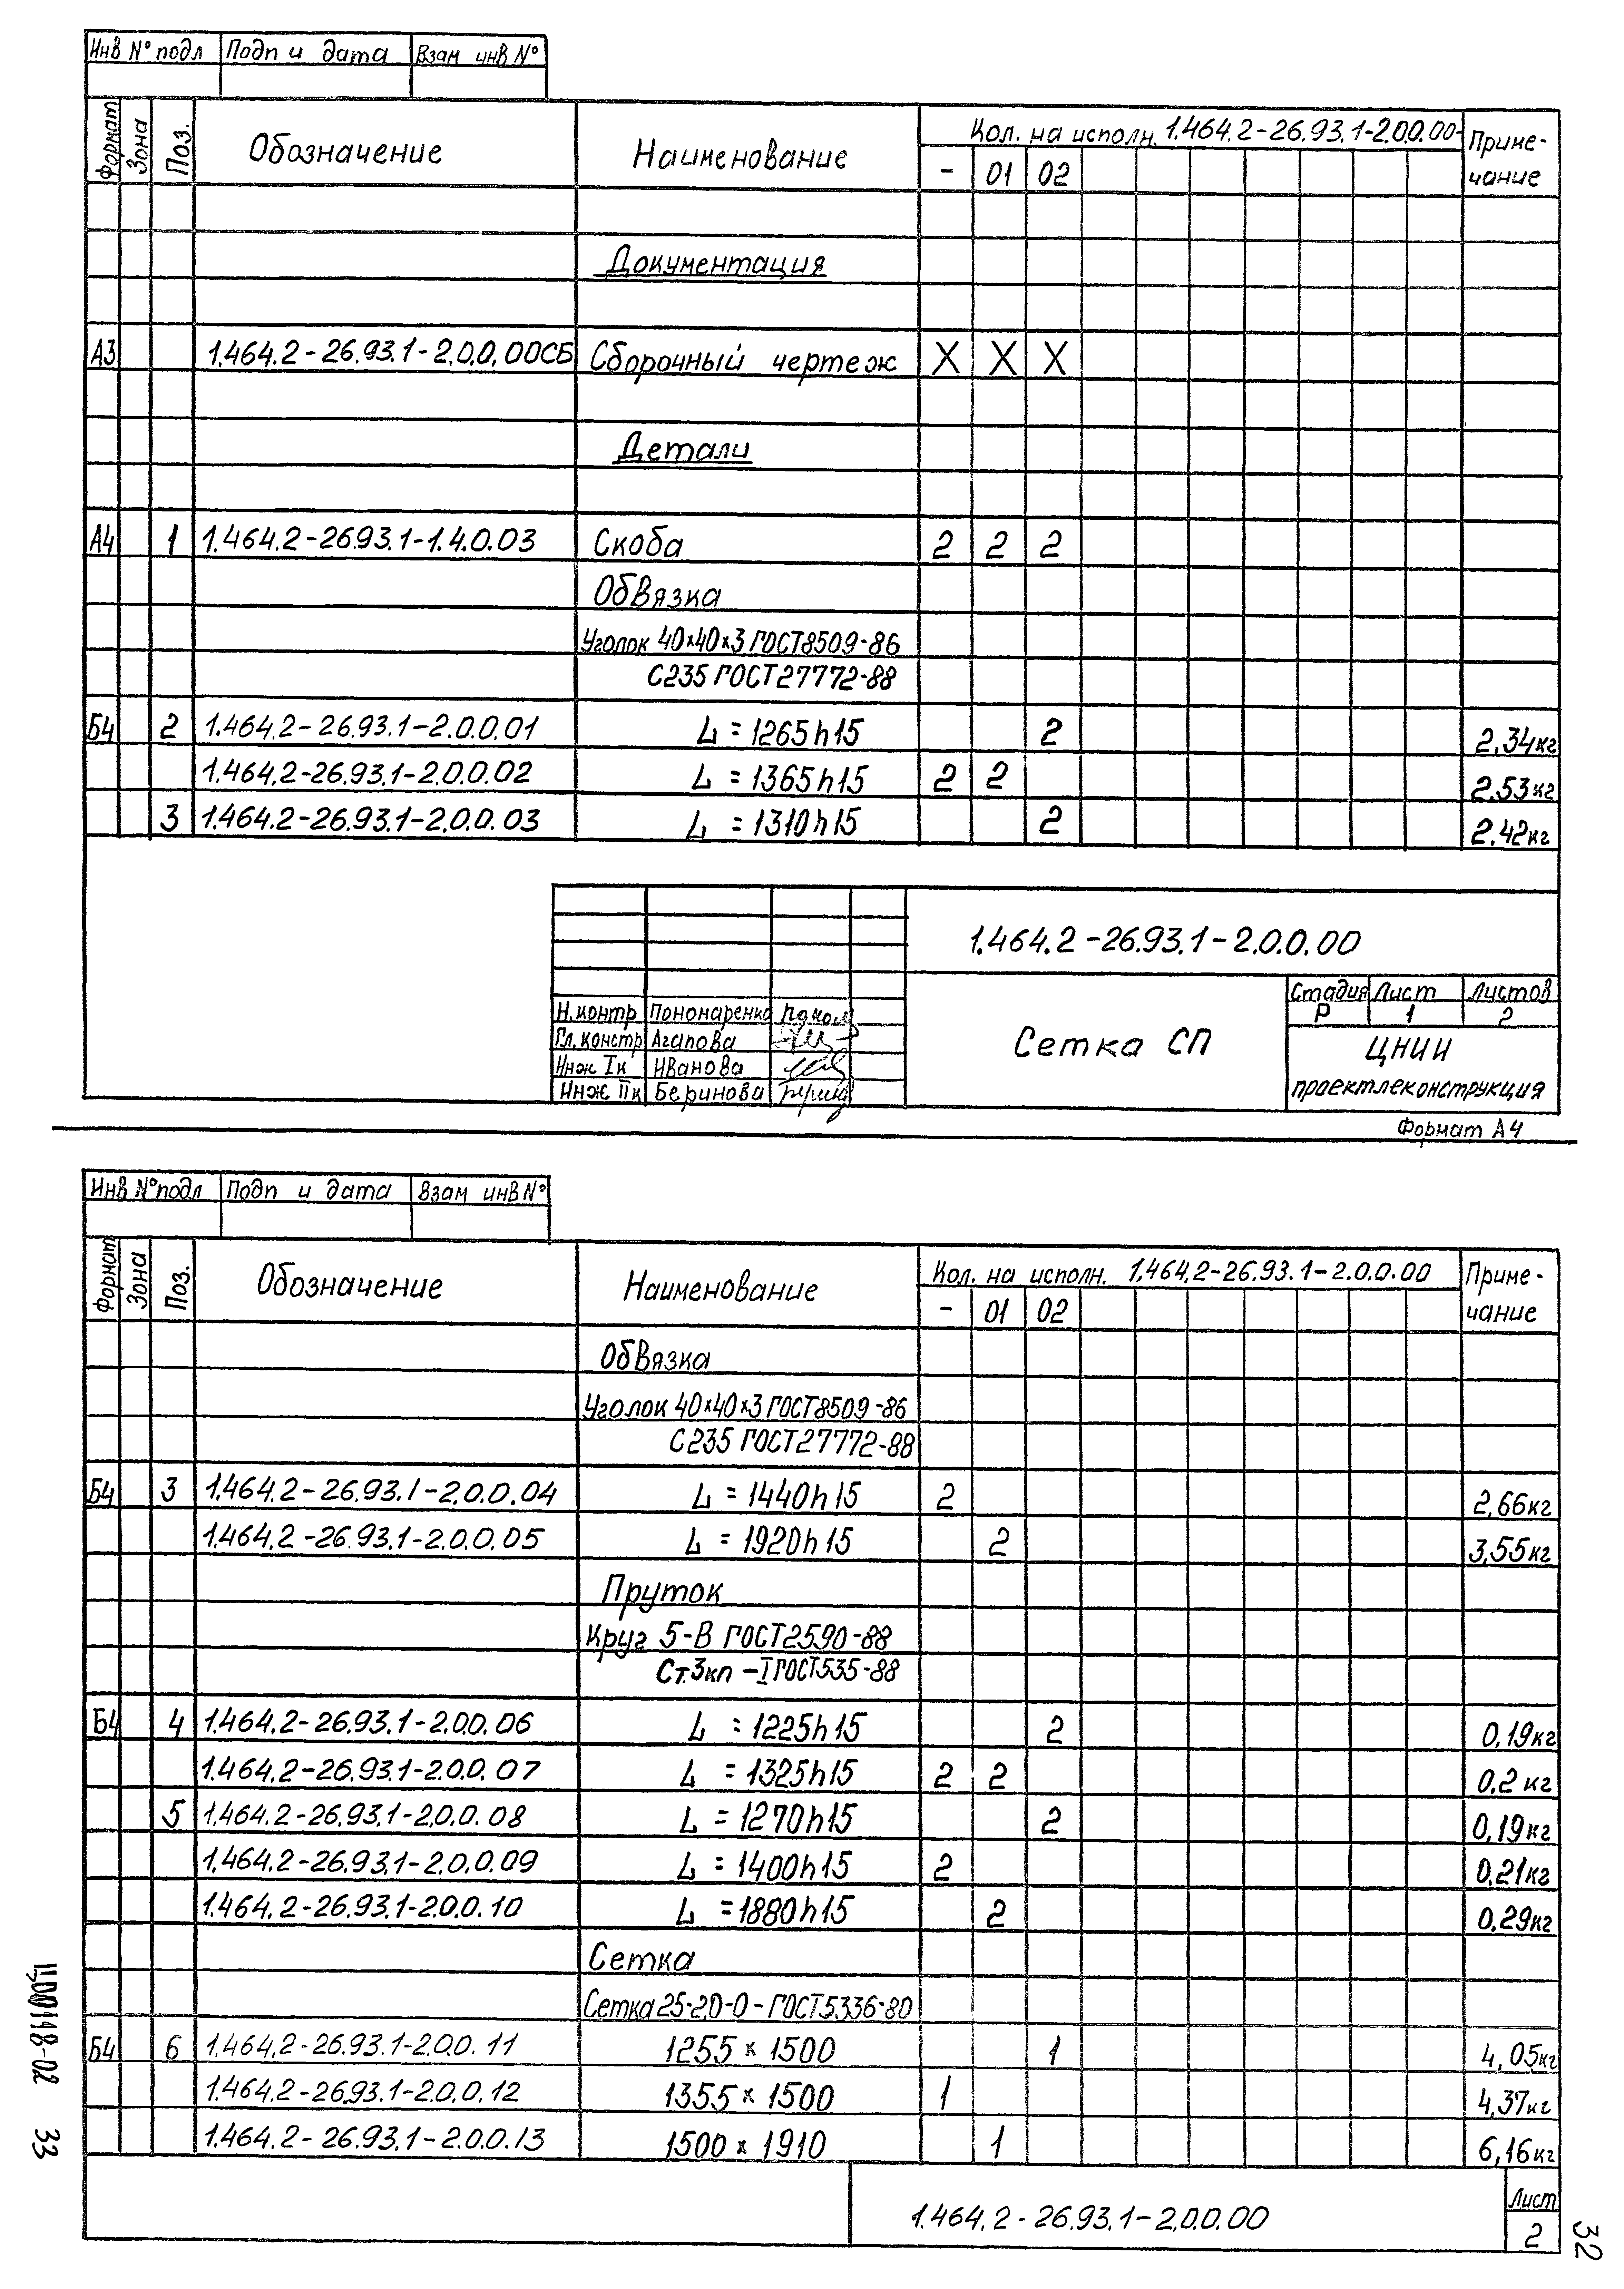 Инв № подл Подп и дата Взам инв №
Формат Зона Поз. Обозначение Наименование Кол. на исполн. 1.464.2-26.93.1-2.0.0.00- Приме-
- 01 02 чание
Документация
А3 1.464.2-26.93.1-2.0.0.00СБ Сборочный чертеж X X X
Детали
А4 1 1.464.2-26.93.1-1.4.0.03 Скоба 2 2 2
Обвязка
Уголок 40×40×3 ГОСТ8509-86
С235 ГОСТ27772-88
Б4 2 1.464.2-26.93.1-2.0.0.01 L = 1265h15 2 2,34кг
1.464.2-26.93.1-2.0.0.02 L = 1365h15 2 2 2.53кг
3 1.464.2-26.93.1-2.0.0.03 L = 1310h15 2 2.42кг
1.464.2-26.93.1-2.0.0.00
Стадия Лист Листов
Р 1 2
Н.контр Пономаренко
Гл.констр Агапова
Инж Iк Иванова
Инж IIк Беринова
Сетка СП
ЦНИИ
проектлеконструкция
Формат А4
Инв № подл Подп и дата Взам инв №
Формат Зона Поз. Обозначение Наименование Кол. на исполн. 1.464.2-26.93.1-2.0.0.00 Приме-
- 01 02 чание
Обвязка
Уголок 40×40×3 ГОСТ8509-86
С235 ГОСТ27772-88
Б4 3 1.464.2-26.93.1-2.0.0.04 L = 1440h15 2 2,66кг
1.464.2-26.93.1-2.0.0.05 L = 1920h15 2 3,55кг
Пруток
Круг 5-В ГОСТ2590-88
Ст.3кп-I ГОСТ535-88
Б4 4 1.464.2-26.93.1-2.0.0.06 L = 1225h15 2 0,19кг
1.464.2-26.93.1-2.0.0.07 L = 1325h15 2 2 0.2 кг
5 1.464.2-26.93.1-2.0.0.08 L = 1270h15 2 0,19кг
1.464.2-26.93.1-2.0.0.09 L = 1400h15 2 0,21кг
1.464.2-26.93.1-2.0.0.10 L = 1880h15 2 0.29кг
Сетка
Сетка 25-2,0-0-ГОСТ5336-80
Б4 6 1.464.2-26.93.1-2.0.0.11 1255 × 1500 1 4,05кг
1.464.2-26.93.1-2.0.0.12 1355 × 1500 1 4,37кг
1.464.2-26.93.1-2.0.0.13 1500 × 1910 1 6,16кг
1.464.2-26.93.1-2.0.0.00
Лист
2
ЦО0118-02 33
32